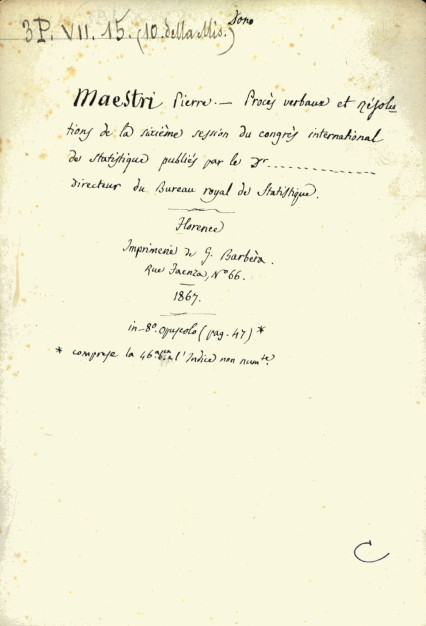 Dono
3P. VII. 15. (10. della Mis.)
Maestri Pierre. — Procès verbaux et résolu
tions de la sixième session du congrès international
de statistique publiés par le Dr. - - - - - - - - - - - - - -
directeur du Bureau royal de Statistique.
Florence
Imprimerie de G. Barbèra.
Rue Faenza, N° 66.
1867.
in-8° opuscolo (pag. 47) *
* comprese la 46 e l'Indice non numte.
C